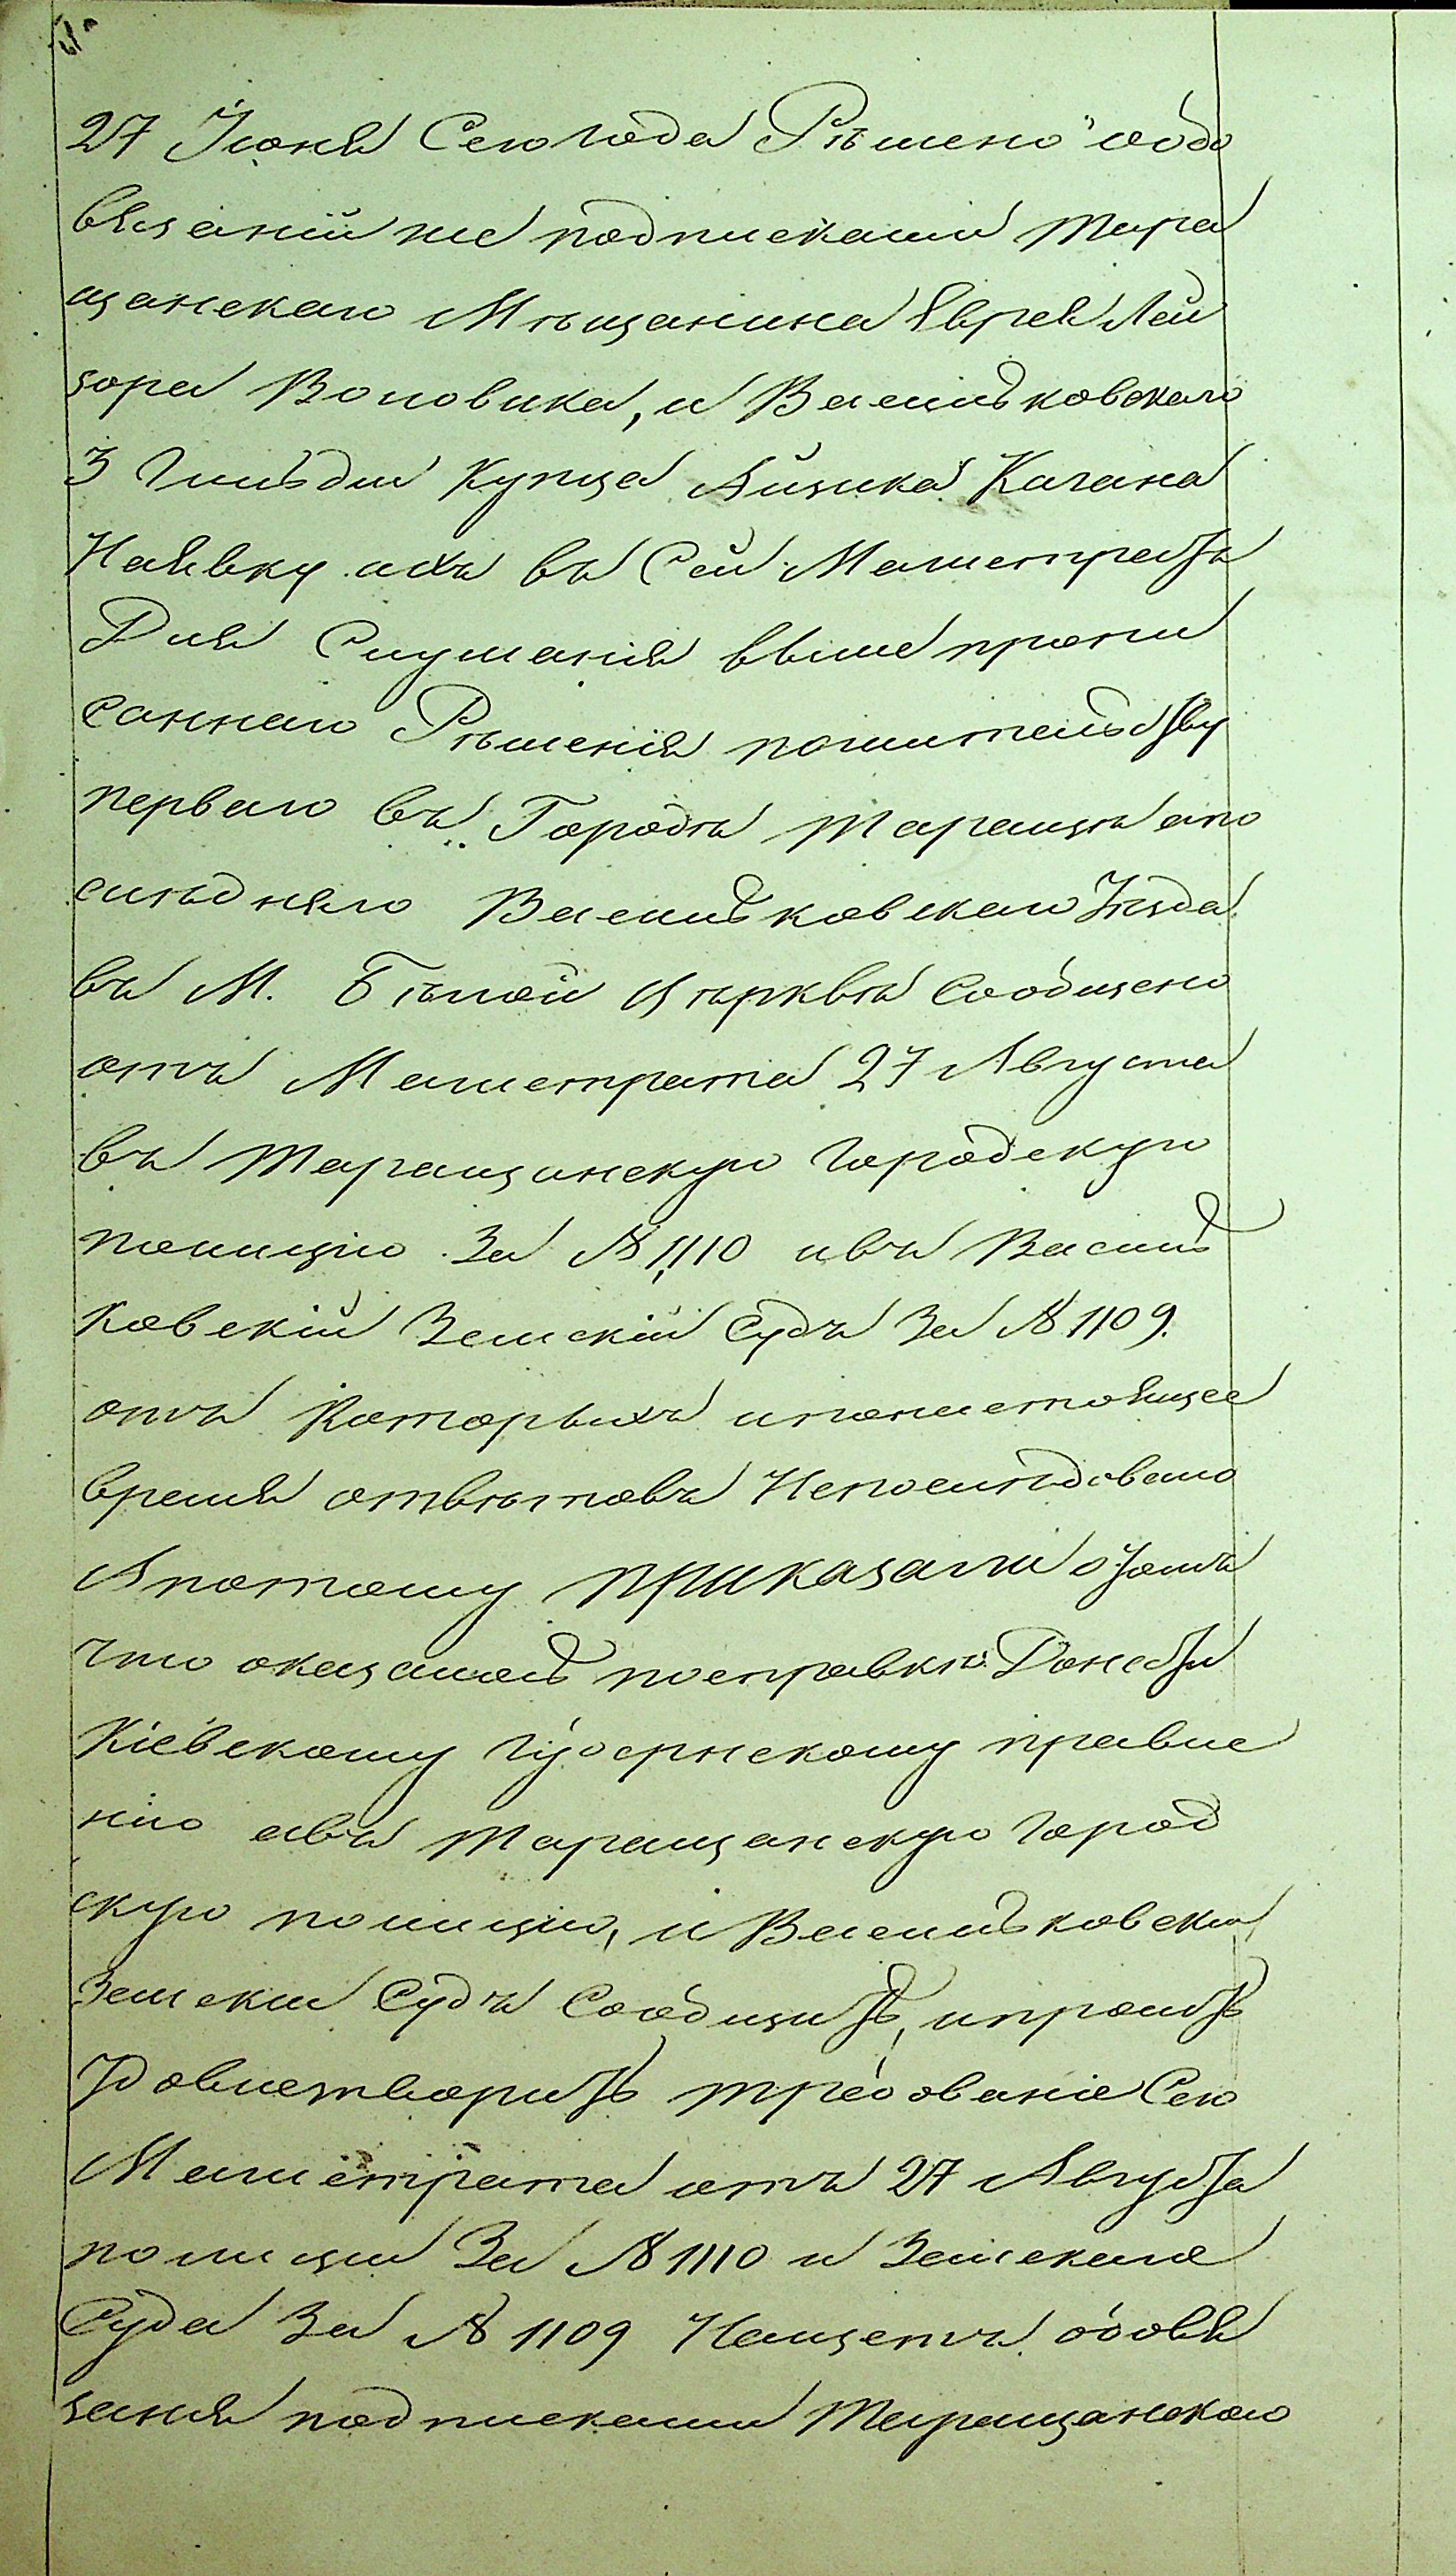 27 Іюня Сего года Рѣшено "обо
вязаніи же подписками Тара
щанскаго Мѣщанина Еврея Лей
зора Воловика, и Васильковскаго
3 гильдіи Купца Айзика Кагана
Наявку ихъ въ Сей Магистратъ
Для Слушанія выше пропи
саннаго Рѣшенія пожительству
перваго въ Городѣ Таращѣ апо
слѣдняго Васильковскаго Уѣзда
въ М. Бѣлой Цѣрквѣ Сообщено
отъ Магистрата 27 Августа
въ Таращанскую городскую
полицію За № 1110 ивъ Василь
ковскій Земскій Судъ За № 1109.
отъ Которыхъ ипонастоящее
время отвѣтовъ Непослѣдовало
Апотому приказали отомъ
что оказалось посправкѣ Донести
Кіевскому губернскому правле
нію авъ Таращанскую город
скую полицію, и Васильковски
Земски Судъ Сообщить, ипросить
Удовлетворить требованіе Сего
Магистрата отъ 27 Августа
полиціи За № 1110 и Земскаго
Суда За № 1109 Нащетъ обовя
занія подписками Таращанскаго